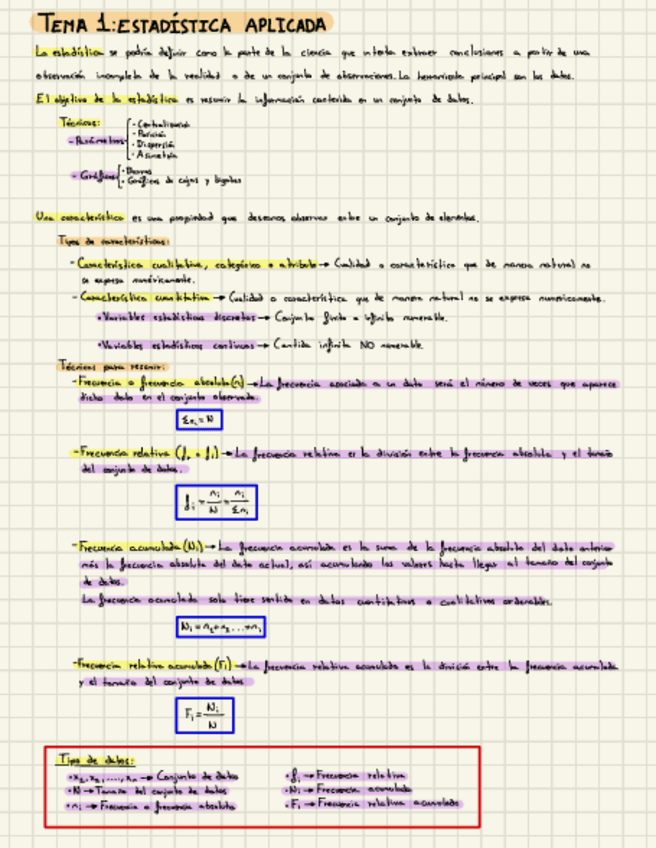 TEMA 1: ESTADÍSTICA APLICADA
La estadística se podría definir como la parte de la ciencia que intenta extraer conclusiones a partir de una
observación incompleta de la realidad o de un conjunto de observaciones. La herramienta principal son los datos.
El objetivo de la estadística es resumir la información contenida en un conjunto de datos.
Técnicas:
- Parámetros
· Centralización
· Posición
· Dispersión
· Asimetría
- Gráficos
· Gráficos de cajas y bigotes
Una característica es una propiedad que deseamos observar entre un conjunto de elementos.
Tipos de características:
- Característica cualitativa, categórica o atributo → Cualidad o característica que de manera natural no
se expresa numéricamente.
- Característica cuantitativa → Cualidad o característica que de manera natural no se expresa numéricamente.
• Variables estadísticas discretas → Conjunto finito o infinito numerable.
• Variables estadísticas continuas → Cantidad infinita NO numerable.
Técnicas para resumir:
- Frecuencia o frecuencia absoluta (nᵢ) → La frecuencia asociada a un dato será el número de veces que aparece
dicho dato en el conjunto observado.
Σnᵢ = N
- Frecuencia relativa (fᵣ o fᵢ) → La frecuencia relativa es la división entre la frecuencia absoluta y el tamaño
del conjunto de datos.
fᵢ = nᵢ/N = nᵢ/Σnᵢ
- Frecuencia acumulada (Nᵢ) → La frecuencia acumulada es la suma de la frecuencia absoluta del dato anterior
más la frecuencia absoluta del dato actual, así acumulando los valores hasta llegar al tamaño del conjunto
de datos.
La frecuencia acumulada solo tiene sentido en datos cuantitativos o cualitativos ordenables.
Nᵢ = n₁ + n₂ ... + nᵢ
- Frecuencia relativa acumulada (Fᵢ) → La frecuencia relativa acumulada es la división entre la frecuencia acumulada
y el tamaño del conjunto de datos
Fᵢ = Nᵢ/N
Tipo de datos:
• x₁, x₂, ..., xₙ → Conjunto de datos
• N → Tamaño del conjunto de datos
• nᵢ → Frecuencia o frecuencia absoluta
• fᵢ → Frecuencia relativa
• Nᵢ → Frecuencia acumulada
• Fᵢ → Frecuencia relativa acumulada